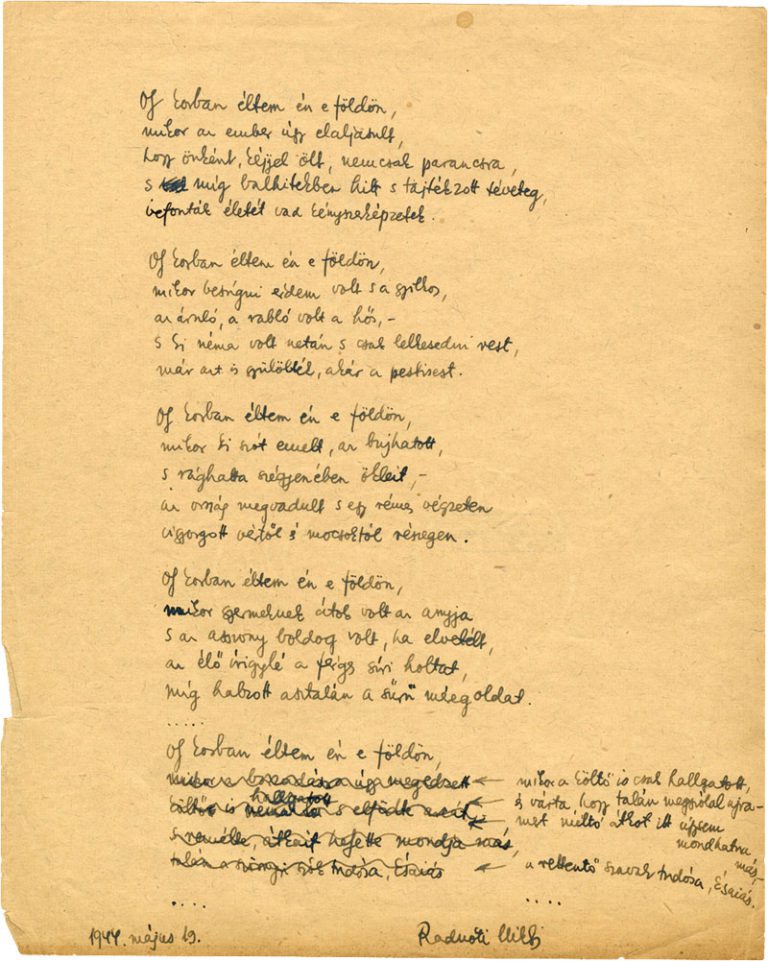 Oly korban éltem én e földön,
mikor az ember úgy elaljasult,
hogy önként, kéjjel ölt, nemcsak parancsra,
s míg balhitekben hitt s tajtékzott téveteg,
befonták életét vad kényszerképzetek.
Oly korban éltem én e földön,
mikor besúgni érdem volt s a gyilkos,
az áruló, a rabló volt a hős, –
s ki néma volt netán s csak lelkesedni rest,
már azt is gyűlölték, akár a pestisest.
Oly korban éltem én e földön,
mikor ki szót emelt, az bujhatott,
s rághatta szégyenében ökleit, –
az ország megvadult s egy rémes végzeten
vigyorgott vértől s mocsoktól részegen.
Oly korban éltem én e földön,
mikor gyermeknek átok volt az anyja
s az asszony boldog volt, ha elvetélt,
az élő írigylé a férges síri holtat,
míg habzott asztalán a sűrü méregoldat.
.....
Oly korban éltem én e földön,
mikor a költő is csak hallgatott,
és várta, hogy talán megszólal ujra –
mert méltó átkot itt úgysem mondhatna más, –
a rettentő szavak tudósa, Ésaiás.
hallgatott
költő is s
s remélte, átkait helyette mondja más,
talán a szók tudósa, Ésaiás
.... ....
1944. május 19. Radnóti Mikl